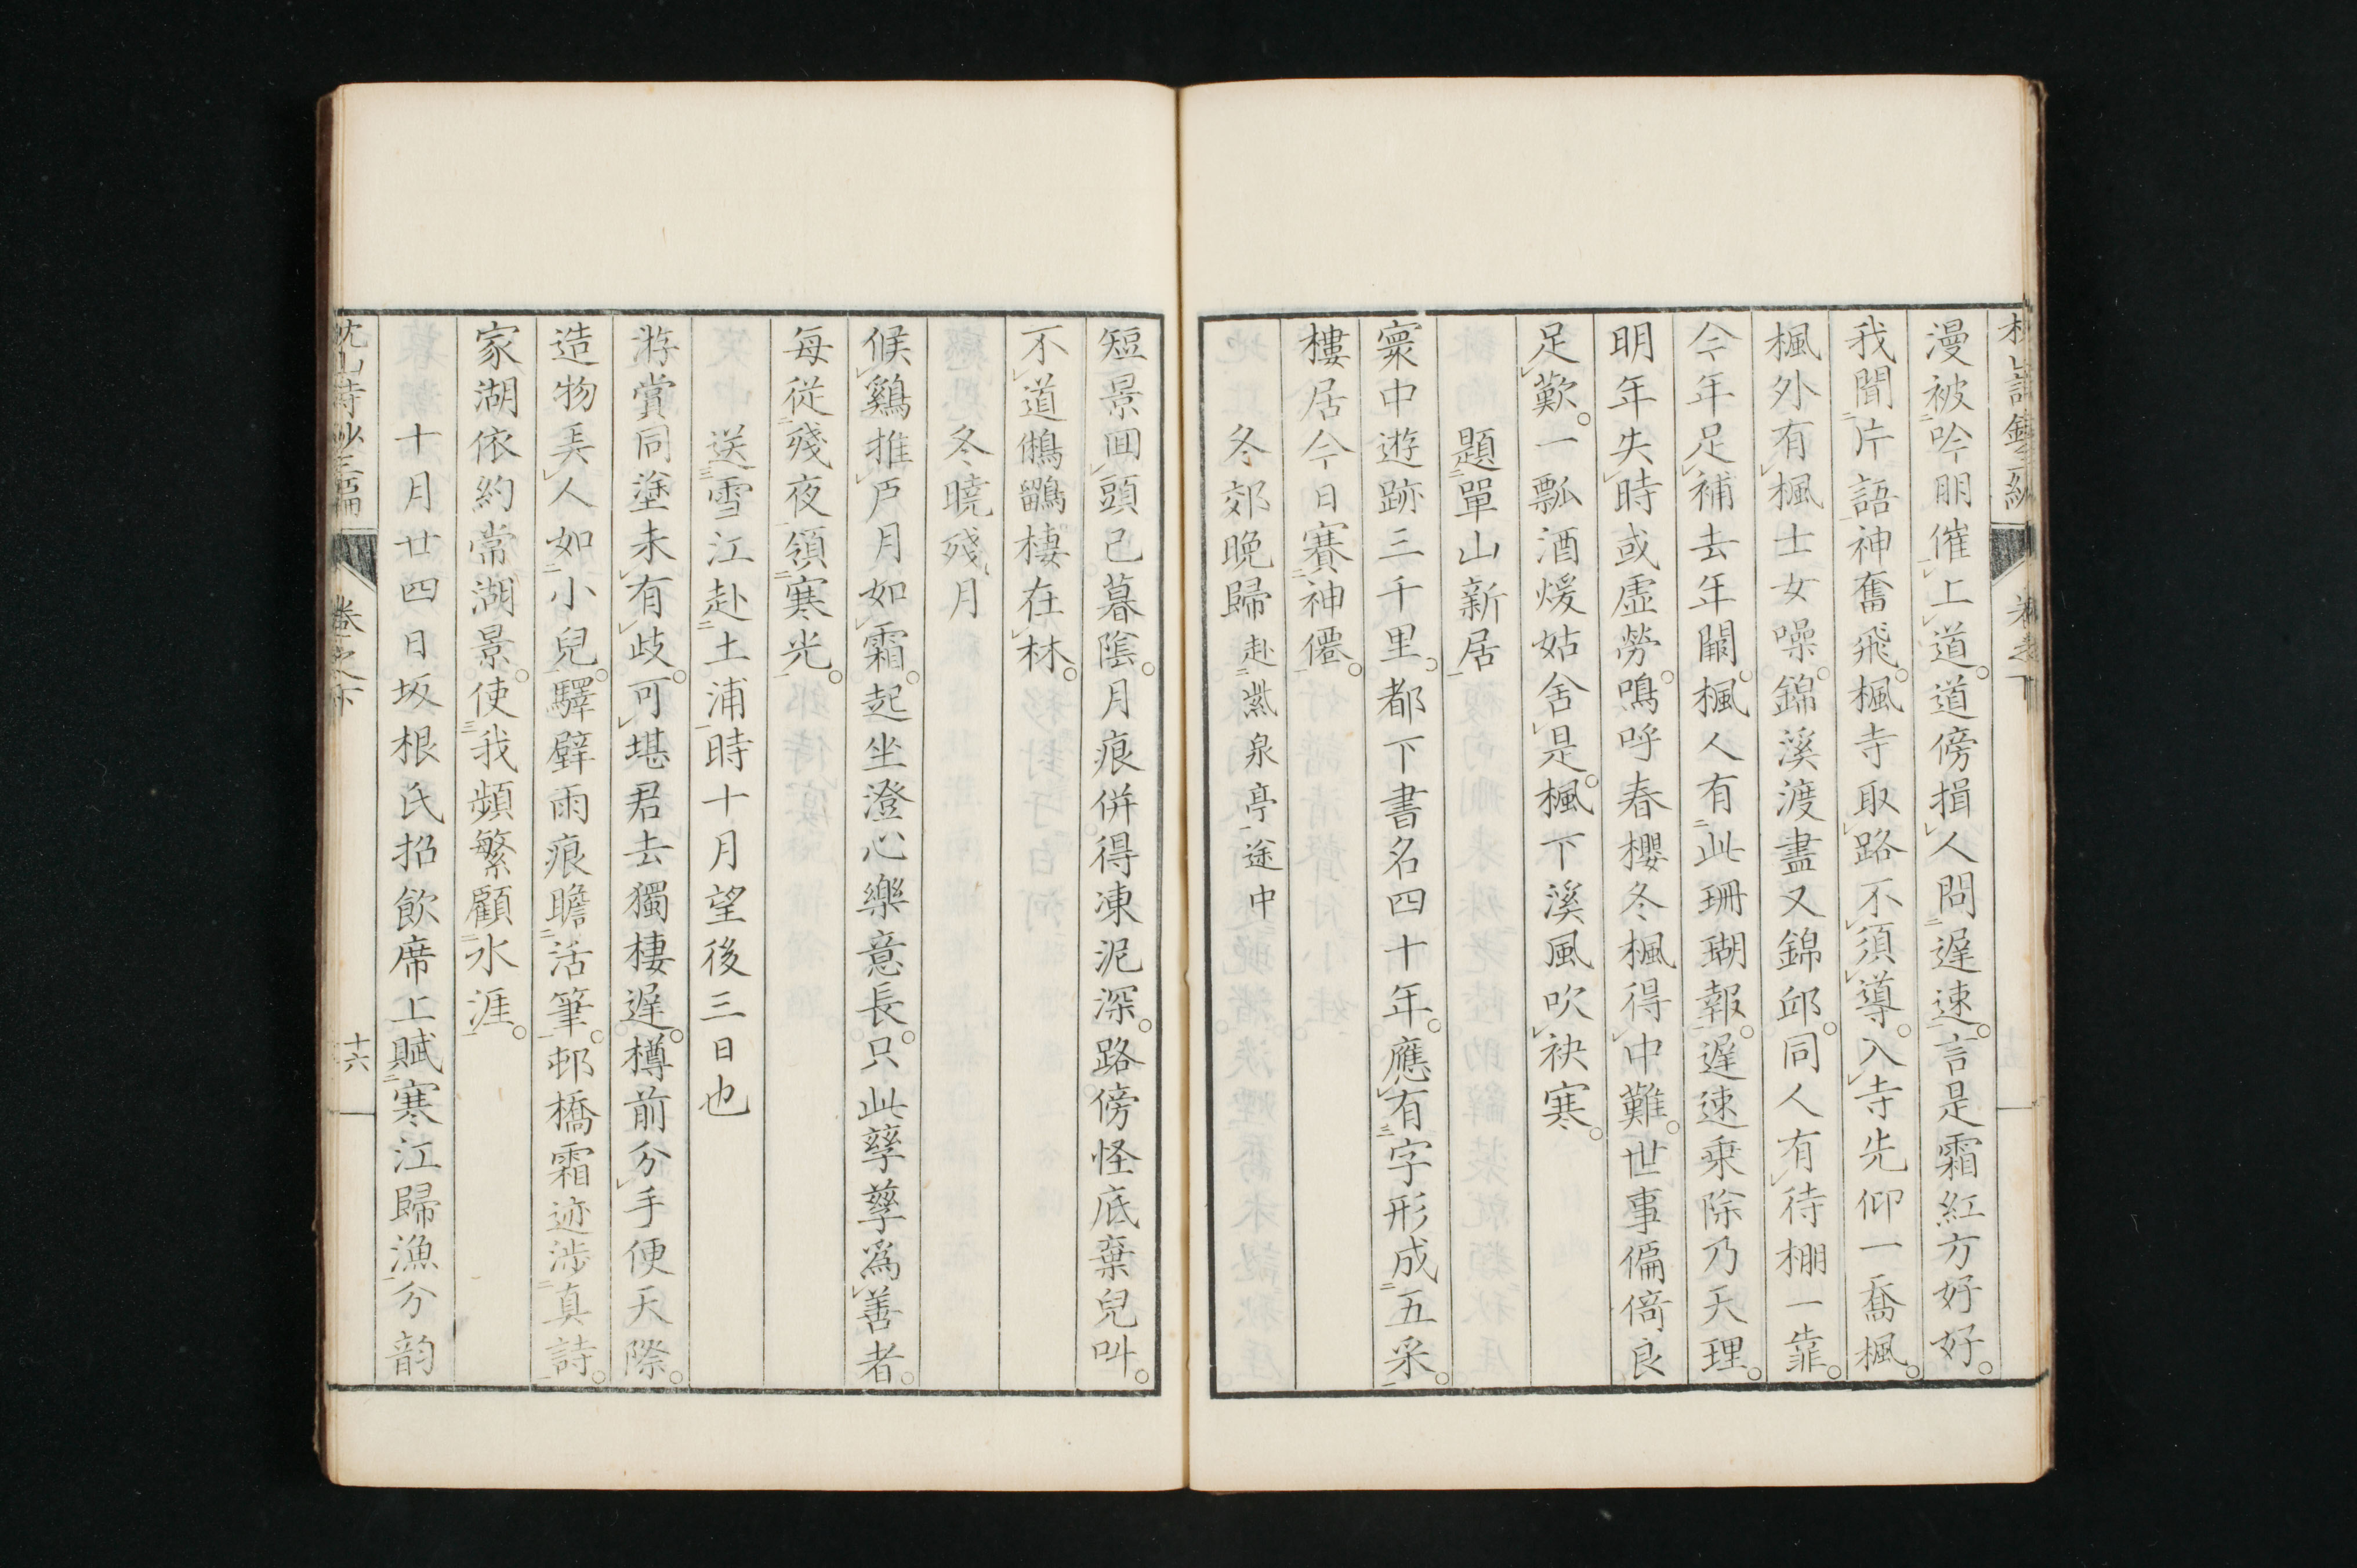 漫被吟朋催上道。道傍揖人問遲速。言是霜紅方好好。
我聞片語神奮飛。楓寺取路不須導。入寺先仰一喬楓。
楓外有楓士女噪。錦溪渡盡又錦邱。同人有待棚一靠。
今年足補去年闕。楓人有此珊瑚報。遲速乗除乃天理。
明年失時或虛勞。嗚呼春櫻冬楓得中難。世事偏倚良
足歎。一瓢酒煖姑舍是。楓下溪風吹袂寒。
題單山新居
寰中遊跡三千里。都下書名四十年。應有字形成五采。
樓居今日賽神僊。
冬郊晚歸赴紫泉亭途中
短景回頭已暮陰。月痕併得凍泥深。路傍怪底棄兒叫。
不道鵂鶹棲在林。
冬曉殘月
候鷄推戶月如霜。起坐澄心樂意長。只此孳孳爲善者。
每從殘夜領寒光。
送雪江赴土浦時十月望後三日也
游賞同塗未有歧。可堪君去獨棲遲。樽前分手便天際。
造物弄人如小兒。驛壁雨痕瞻活筆。邨橋霜迹涉真詩。
家湖依約常湖景。使我頻繁顧水涯。
十月廿四日坂根氏招飲席上賦寒江歸漁分韵
枕山詩鈔三編
卷之下
十六